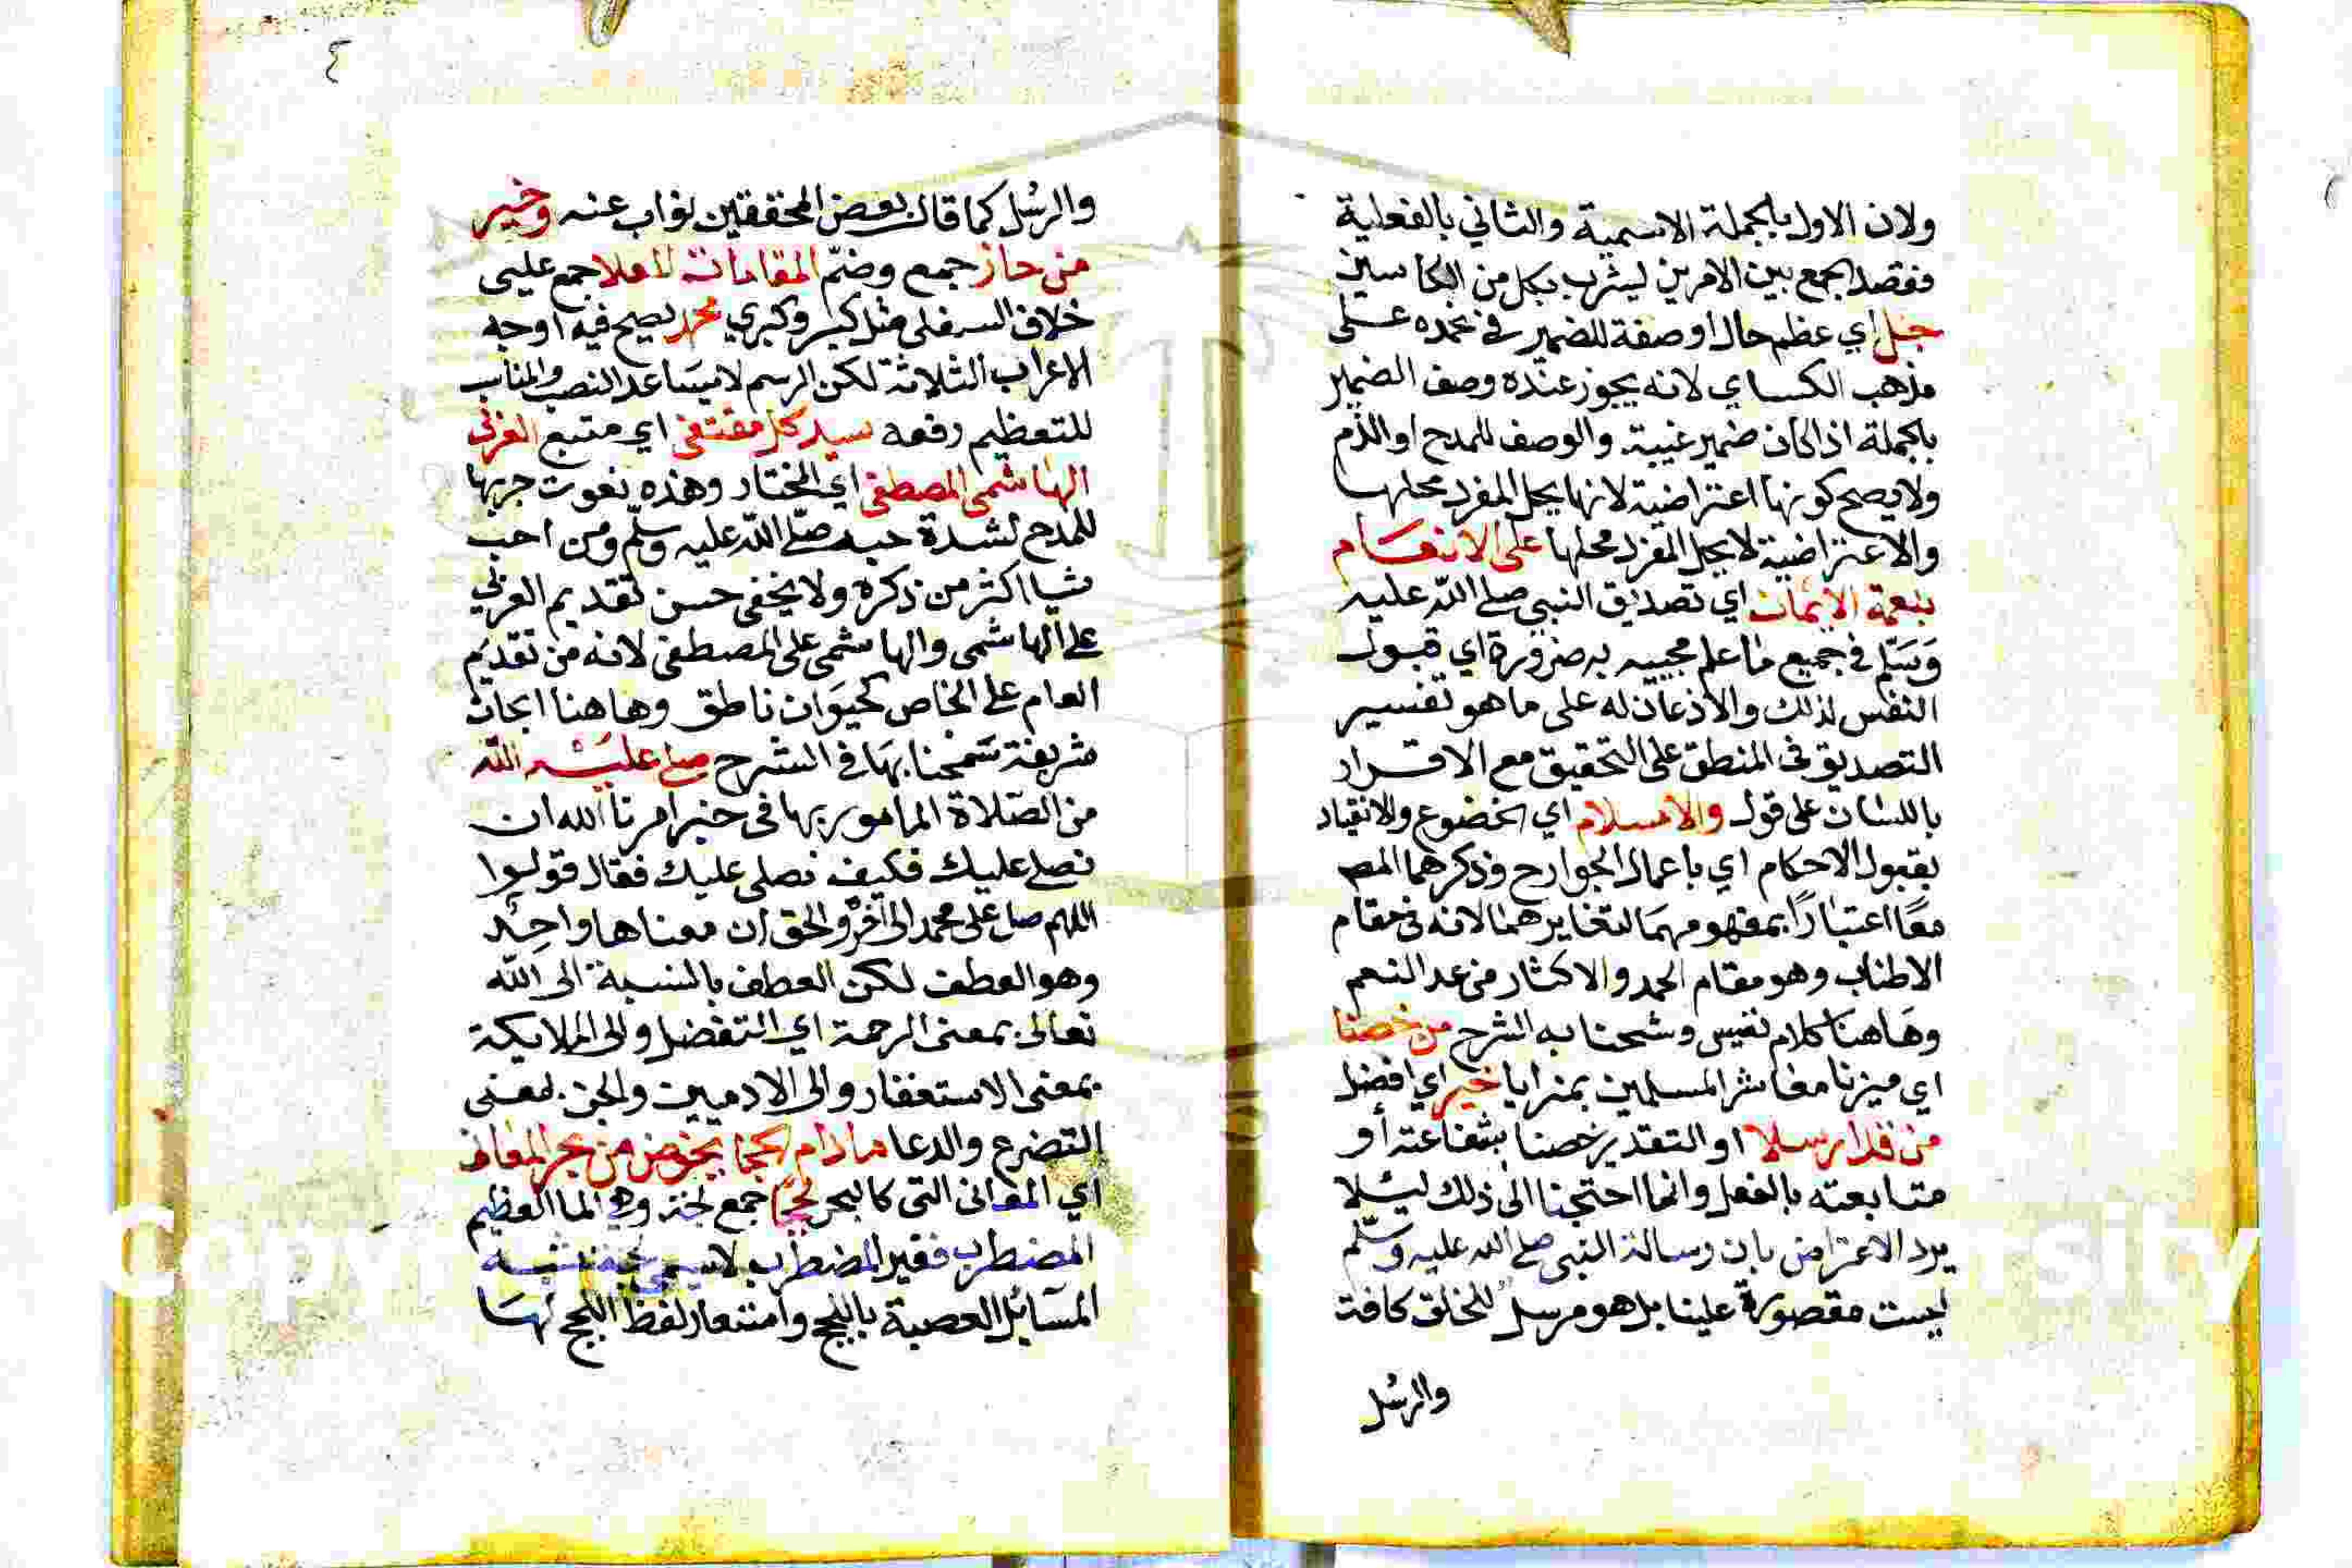 ولان الاول بالجملة الاسمية والثاني بالفعلية
فقصد الجمع بين الامرين ليشرب بكل من الكاسين
جل اي عظم حال او صفة للضمير في نحمده على
مذهب الكساي لانه يجوز عنده وصف الضمير
بالجملة اذا كان ضمير غيبة والوصف للمدح او الذم
ولا يصح كونها اعتراضية لانها يحل المفرد محلها
والاعتراضية لا يحل المفرد محلها على الانعام
بنعمة الايمان اي تصديق النبي صلى الله عليه
وسلم في جميع ما علم مجييه به ضرورة اي قبول
النفس لذلك والاذعان له على ما هو تفسير
التصديق في المنطق على التحقيق مع الاقرار
باللسان على قول والاسلام اي الخضوع والانقياد
بقبول الاحكام اي باعمال الجوارح وذكرهما المص
معا اعتبارًا بمفهومهما لتغايرهما لانه في مقام
الاطناب وهو مقام الحمد والاكثار من عد النعم
وهاهنا كلام نفيس وشحنا به الشرح من خصنا
اي ميزنا معاشر المسلمين بمزايا خير اي افضل
من قد ارسلا او التقدير خصنا بشفاعته أو
متابعته بالفعل وانما احتجنا الى ذلك ليلا
يرد الاعتراض بان رسالة النبي صلى الله عليه وسلم
ليست مقصورة علينا بل هو مرسل للخلق كافة
والرسل
٤
والرسل كما قال بعض المحققين نواب عنه وخير
من حاز جمع وضم المقامات العلا جمع عليى
خلاف السفلى مثل كبر وكبري محمد يصح فيه اوجه
الاعراب الثلاثة لكن الرسم لا يساعد النصب والمناسب
للتعظيم رفعه سيد كل مقتفى اي متبع العربي
الهاشمى المصطفى اي المختار وهذه نعوت جي بها
للمدح لشدة حبه صلى الله عليه وسلم ومن احب
شيا اكثر من ذكره ولا يخفى حسن تقديم العربي
على الهاشمى والهاشمى على المصطفى لانه من تقديم
العام على الخاص كحيوان ناطق وهاهنا ابحاث
شريفة سمحنا بها في الشرح صلى عليه الله
من الصلاة المامور بها في خبر امرنا الله ان
نصلى عليك فكيف نصلى عليك فقال قولوا
اللهم صل على محمد الى آخره والحق ان معناها واحد
وهو العطف لكن العطف بالنسبة الى الله
تعالى بمعنى الرحمة اي التفضل والى الملايكة
بمعنى الاستغفار والى الادميين والجن بمعنى
التضرع والدعا ما دام الحجا يخوض من بحر المعاني
اي المعاني التى كالبحر لججا جمع لجة وهي الما العظيم
المضطرب فغير المضطرب لا يسمى لجة شبه
المسائل الصعبة باللجج واستعار لفظ اللجج لها